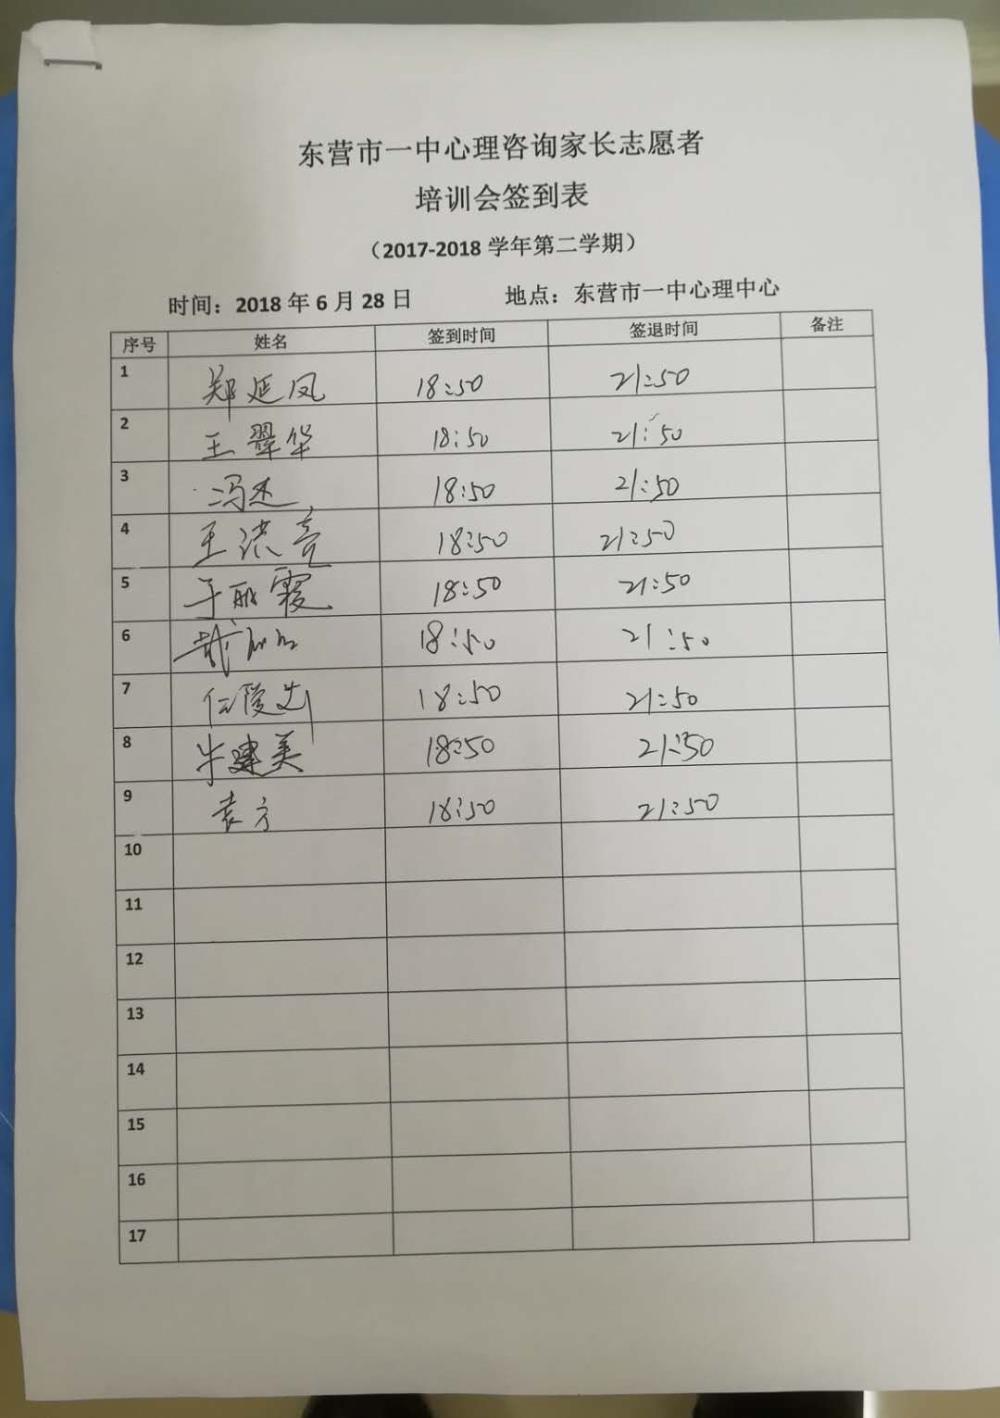 东营市一中心理咨询家长志愿者
培训会签到表
（2017-2018 学年第二学期）
时间：2018 年 6 月 28 日 地点：东营市一中心理中心
序号 姓名 签到时间 签退时间 备注
1 郑延凤 18:50 21:50
2 王翠华 18:50 21:50
3 冯杰 18:50 21:50
4 王洪亮 18:50 21:50
5 于丽霞 18:50 21:50
6 18:50 21:50
7 18:50 21:50
8 牛建美 18:50 21:50
9 袁方 18:50 21:50
10
11
12
13
14
15
16
17